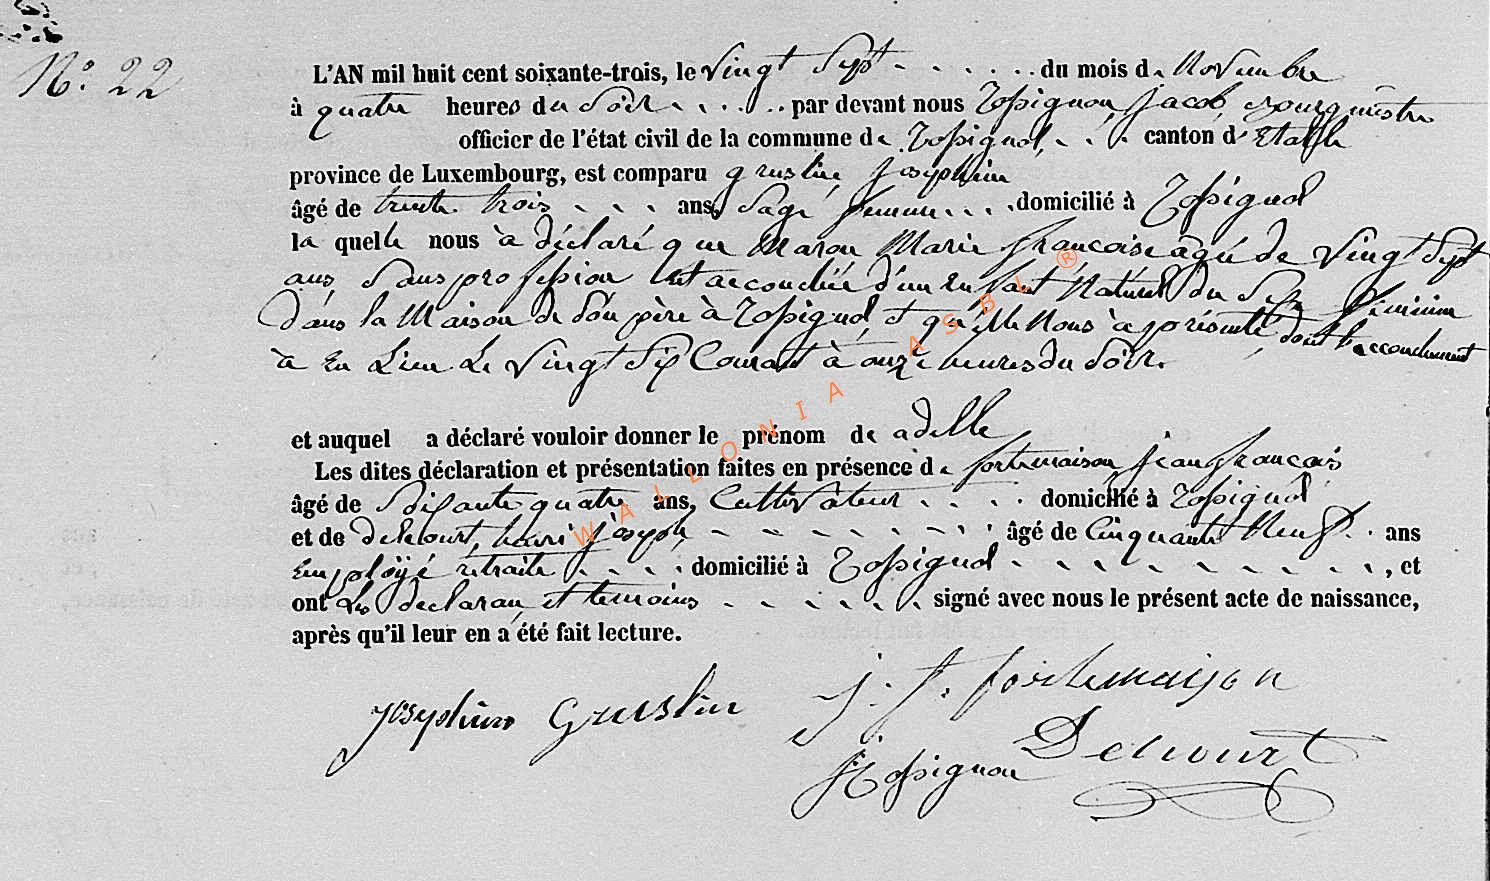 N° 22
L'AN mil huit cent soixante-trois, le vingt sept . . . . . . du mois de Novembre
à quatre heures du Soir . . . . . par devant nous Rossignon, Jacob, Bourgmestre
officier de l'état civil de la commune de Rossignol, . . . canton d'Etalle
province de Luxembourg, est comparu gruslin, Josephine
âgé de trente trois . . . ans, Sage femme . . . domicilié à Rossignol
la quelle nous à déclaré que Maron Marie françoise agée de vingt Sept
ans Sans profession est accouchée d'un Enfant Naturel du Sexe féminin
Dans la Maison de Son père à Rossignol et qu'elle Nous à présenté, dont l'accouchement
à Eu Lieu Le vingt Six Courant à onze heures du Soir.
et auquel a déclaré vouloir donner le prénom de adelle
Les dites déclaration et présentation faites en présence de fortemaison jean françois
âgé de Soixante quatre ans, Cultivateur . . . . domicilié à Rossignol
et de delcourt, henri joseph, - - - - - - - - âgé de Cinquante Neuf . . ans
Employé retraité . . . . domicilié à Rossignol - - - - - - - - - - , et
ont Les declaran et temoins - - - - - - signé avec nous le présent acte de naissance,
après qu'il leur en a été fait lecture.
Josephine Gruslin
J. f. fortemaison
Delcourt
J Rossignon
WALLONIA ASBL ®